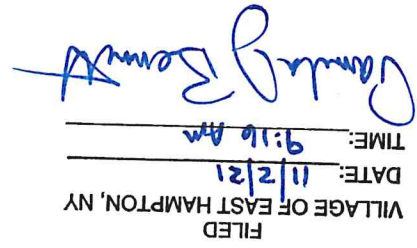 FILED
VILLAGE OF EAST HAMPTON, NY
DATE: 11/2/21
TIME: 9:16 AM
Pamela J Bennett